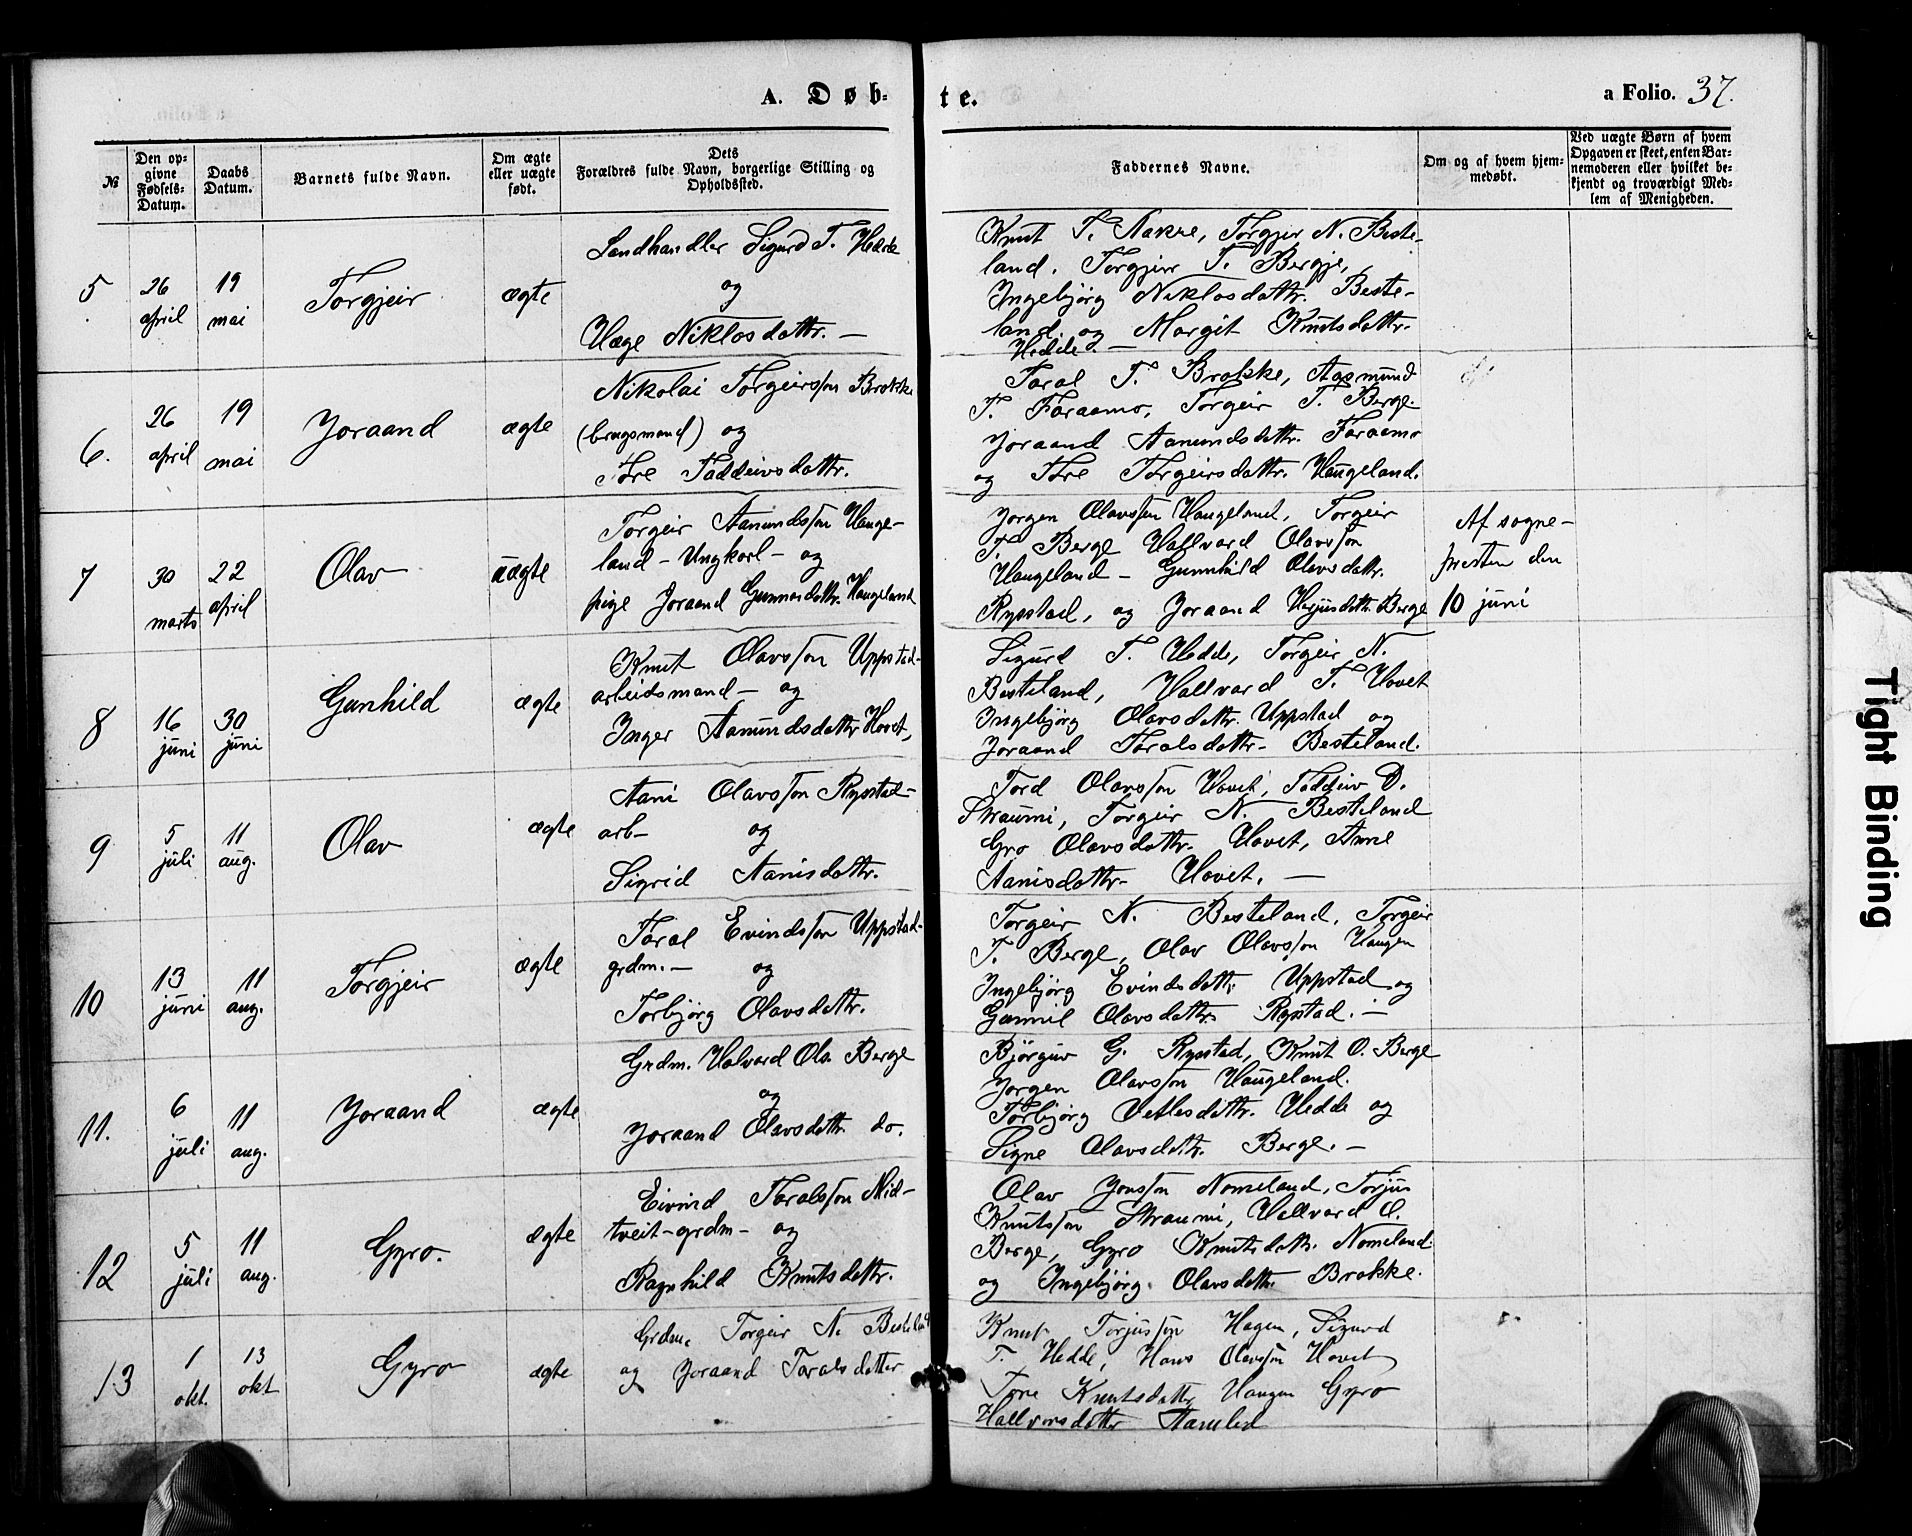 A. Døb-
te.
a Folio. 37.
№
Den op-
givne
Fødsels-
Datum.
Daabs
Datum.
Barnets fulde Navn.
Om ægte
eller uægte
født.
Dets
Forældres fulde Navn, borgerlige Stilling og
Opholdssted.
Faddernes Navne.
Om og af hvem hjem-
medøbt.
Ved uægte Børn af hvem
Opgaven er skeet, enten Bar-
nemoderen eller hvilket be-
kjendt og troværdigt Med-
lem af Menigheden.
5
26
april
19
mai
Torgjeir
ægte
Landhandler Sigurd T.
og
Hæge Niklosdattr. —
Knut T. Torgjeir N. Beste-
land. Torgjeir T. Berge,
Ingebjörg Niklosdattr. Beste-
land og Margit Knutsdattr.
Hedde. —
6.
26
april
19
mai
Joraand
ægte
Nikolai Torgeirsson Brokke
(brugsmand) og
Tore Taddeivsdattr.
Tarol T. Brokke, Aasmund
T. Faraamo, Torgeir T. Berge.
Joraand Aanundsdattr. Faraamo
og Tore Torgeirsdattr. Haugeland.
7
30
marts
22
april
Olav
uægte
Torgeir Aanundsson Hauge-
land - Ungkarl - og
pige Joraand Gunnarsdattr. Haugeland
Jorgen Olavsson Haugeland, Torgeir
T. Berge Hallvard Olavsson
Haugeland - Gunnhild Olavsdattr.
Rysstad, og Joraand Herjusdattr. Berge
Af sogne-
presten den
10 juni
8
16
juni
30
juni
Gunhild
ægte
Knut Olavsson Uppstad-
arbeidsmand - og
Inger Aanundsdattr Hovet,
Sigurd T. Hedde, Torgeir N.
Besteland, Hallvard T. Hovet
Ingebjörg Olavsdattr. Uppstad og
Joraand Tarolsdattr. Besteland.
9
5
juli
11
aug.
Olav
ægte
Aani Olavsson Rysstad-
arb- og
Sigrid Aanisdattr.
Tord Olavsson Hovet, Taddeiv D.
Straumi, Torgeir N. Besteland
Gro Olavsdattr. Hovet, Anne
Aanisdattr. Hovet. —
10
13
juni
11
aug.
Torgjeir
ægte
Tarol Evindsson Uppstad-
grdm. — og
Torbjörg Olavsdattr.
Torgeir N. Besteland, Torgeir
T. Berge, Olav Olavsson Haugen
Ingebjörg Evindsdattr. Uppstad og
Olavsdattr. Rysstad. —
11.
6
juli
11
aug.
Joraand
ægte
Grdm. Halvard Ols. Berge
og
Joraand Olavsdattr. do.
Björguv G. Rysstad, Knut O. Berge
Jorgen Olavsson Haugeland.
Torbjörg Vetlesdattr. Hedde og
Signe Olavsdattr. Berge. —
12
5
juli
11
aug.
Gyro.
ægte
Eivind Tarolsson Nid-
tveit-grdm- og
Ragnhild Knutsdattr.
Olav Jonsson Nomeland, Torjus
Knutsson Straumi, Hallvard O.
Berge, Gyro Knutsdattr. Nomeland.
og Ingebjörg Olavsdattr. Brokke.
13
1
okt.
13
okt
Gyro
ægte
Grdm. Torgeir N. Besteland
og Joraand Tarolsdatter
Knut Torjusson Hagen, Sigurd
T. Hedde, Hans Olavsson Hovet
Tone Knutsdatter Haugen Gyro
Hallvorsdatter
Tight Binding